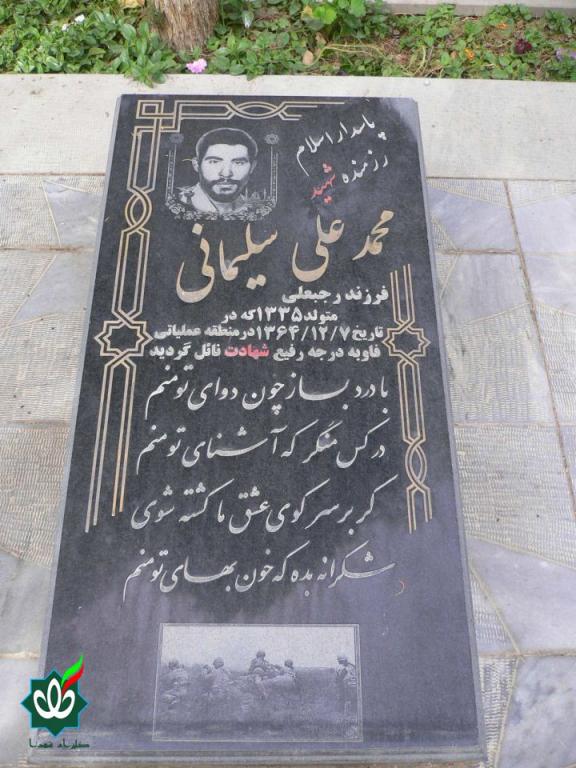 پاسدار اسلام
رزمنده شهید
محمد علی سلیمانی
فرزند رجبعلی
متولد ۱۳۳۵ که در
تاریخ ۱۳۶۴/۱۲/۷ در منطقه عملیاتی
فاو به درجه رفیع شهادت نائل گردید
با درد بساز چون دوای تو منم
در کس منگر که آشنای تو منم
گر بر سر کوی عشق ما کشته شوی
شکرانه بده که خون بهای تو منم
گلزار شهدا